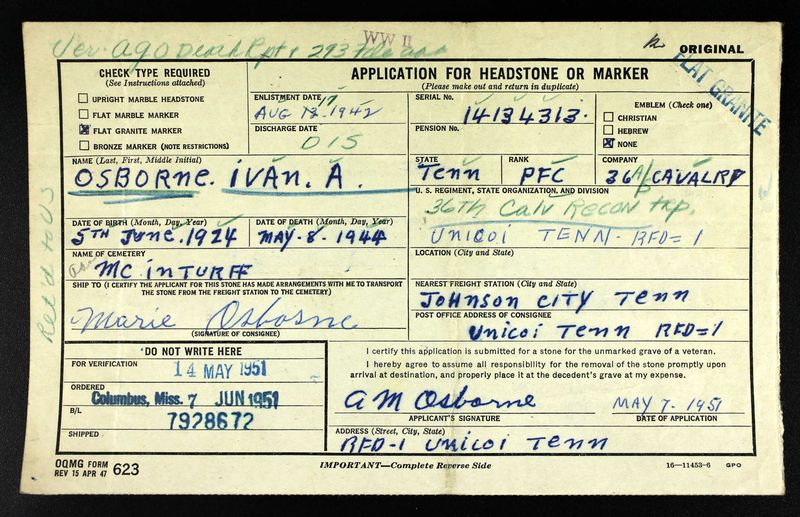 Ver. AGO Death Rpt. 293 File
WW II
ORIGINAL
FLAT GRANITE
CHECK TYPE REQUIRED
(See Instructions attached)
UPRIGHT MARBLE HEADSTONE
FLAT MARBLE MARKER
FLAT GRANITE MARKER
BRONZE MARKER (NOTE RESTRICTIONS)
APPLICATION FOR HEADSTONE OR MARKER
(Please make out and return in duplicate)
ENLISTMENT DATE 17
AUG 13. 1942
DISCHARGE DATE
DIS
SERIAL No.
14134313.
PENSION No.
EMBLEM (Check one)
CHRISTIAN
HEBREW
NONE
NAME (Last, First, Middle Initial)
OSBORNE. IVAN. A.
STATE
TENN
RANK
PFC
COMPANY
36 CAVALRY
U. S. REGIMENT, STATE ORGANIZATION, AND DIVISION
36th Calv RECON trp.
UNICOI TENN - RFD=1
DATE OF BIRTH (Month, Day, Year)
5TH JUNE. 1924
DATE OF DEATH (Month, Day, Year)
MAY-8-1944
NAME OF CEMETERY
MC INTURFF
LOCATION (City and State)
SHIP TO (I CERTIFY THE APPLICANT FOR THIS STONE HAS MADE ARRANGEMENTS WITH ME TO TRANSPORT
THE STONE FROM THE FREIGHT STATION TO THE CEMETERY)
Marie Osborne
(SIGNATURE OF CONSIGNEE)
NEAREST FREIGHT STATION (City and State)
JOHNSON CITY TENN
POST OFFICE ADDRESS OF CONSIGNEE
UNICOI TENN RFD=1
Ret'd to US
DO NOT WRITE HERE
FOR VERIFICATION
14 MAY 1951
ORDERED
Columbus, Miss. 7 JUN 1951
B/L
7928672
SHIPPED
I certify this application is submitted for a stone for the unmarked grave of a veteran.
I hereby agree to assume all responsibility for the removal of the stone promptly upon
arrival at destination, and properly place it at the decedent's grave at my expense.
A M Osborne
MAY 7. 1951
APPLICANT'S SIGNATURE
DATE OF APPLICATION
ADDRESS (Street, City, State)
RFD-1 UNICOI TENN
OQMG FORM
REV 15 APR 47 623
IMPORTANT—Complete Reverse Side
16—11453-6 GPO